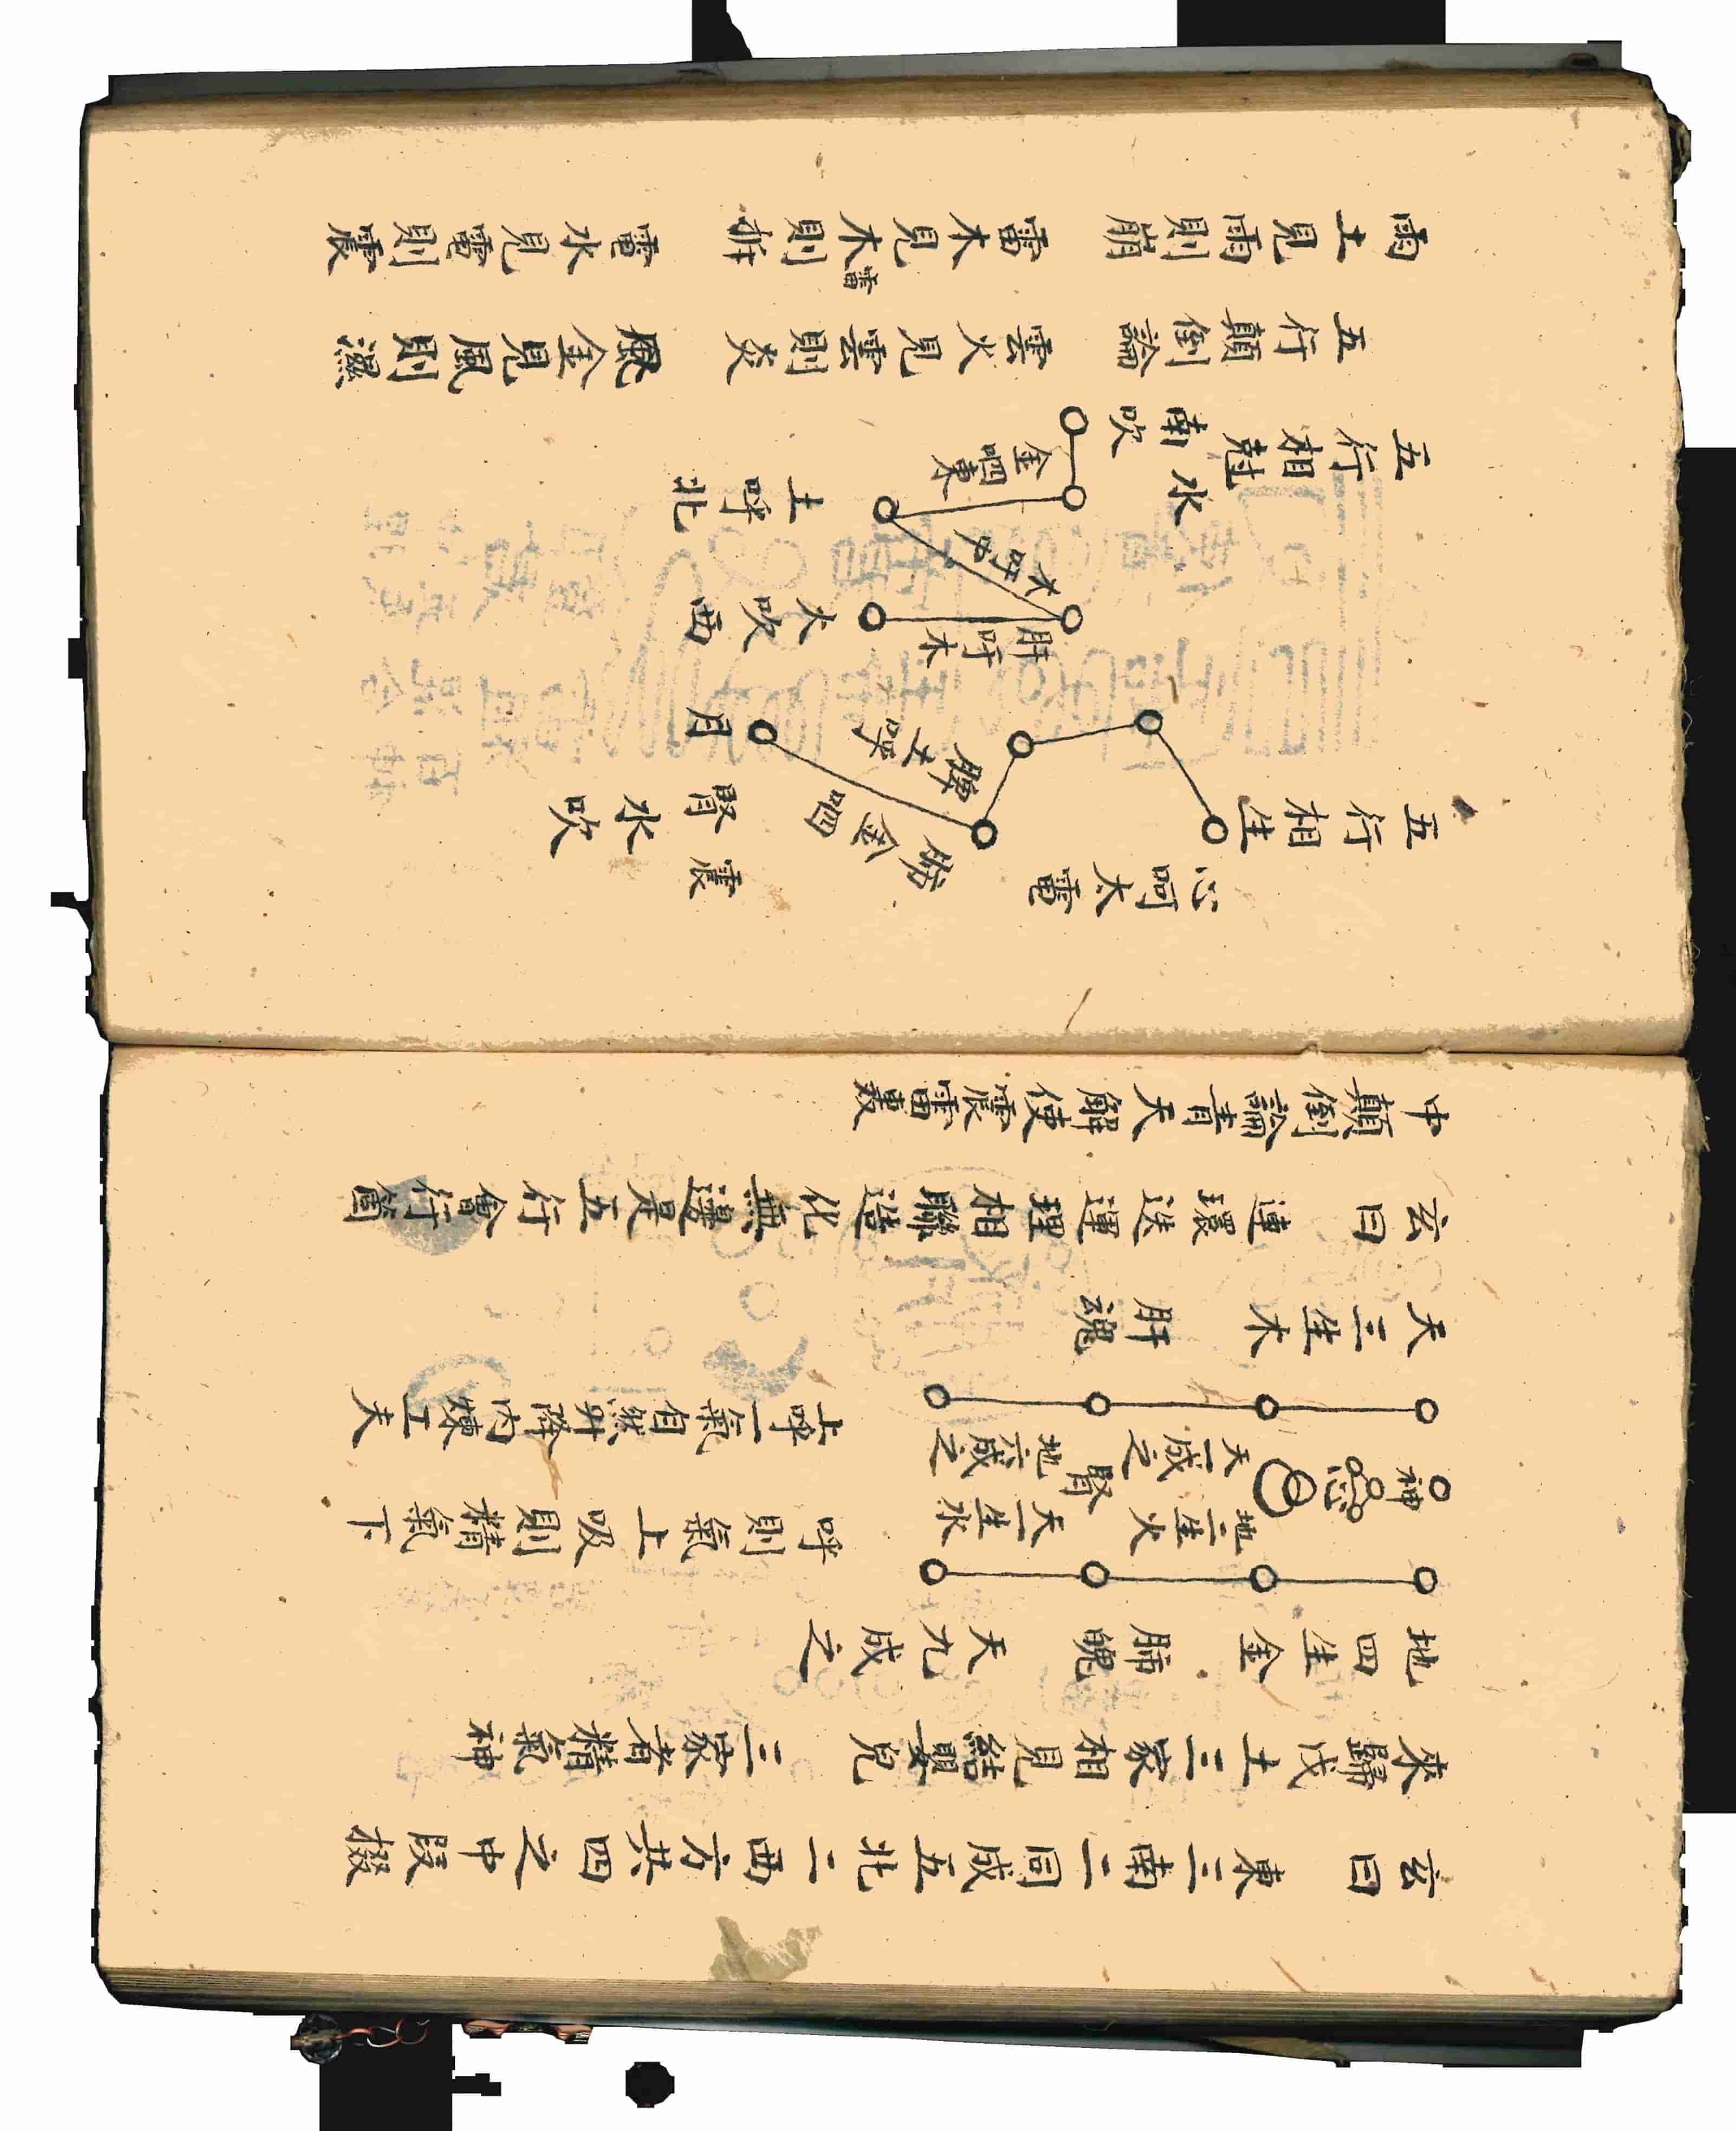 玄曰 東三南二同成五北二西方共四之中叚掇
來歸戊土三家相見結嬰兒 三家者精氣神
地四生金 肺魄 天九成之
神 心
地二生火 天一生水
呼則氣上吸則精氣下
天一成之 腎 地六成之
上呼一氣自然升降內煉工夫
天三生木 肝魂
玄曰 連環送運理相聯造化無邊是五行會行箇
中顛倒論青天解使震雷轟
五行相生
心呵太電
脾土呼
肺金呬
腎水吹
震
月
肝呼木
五行相尅
南吹
水
金呬東
木呼中
土呼北
火吹西
五行顛倒論 雲火見雲則炎 風金見風則濕
雨土見雨則崩 雷木見木雷則拆 電水見電則震